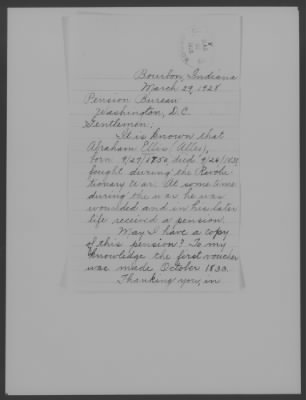 Bourbon, Indiana
March 29, 1928
Pension Bureau
Washington, D.C.
Gentlemen:
It is known that
Abraham Ellis (Alles),
born 9/27/1750, died 9/24/
fought during the Revolu-
tionary War. At some time
during the war he was
wounded and in his later
life received a pension.
May I have a copy
of this pension? To my
knowledge the first voucher
was made October 1833.
Thanking you, in